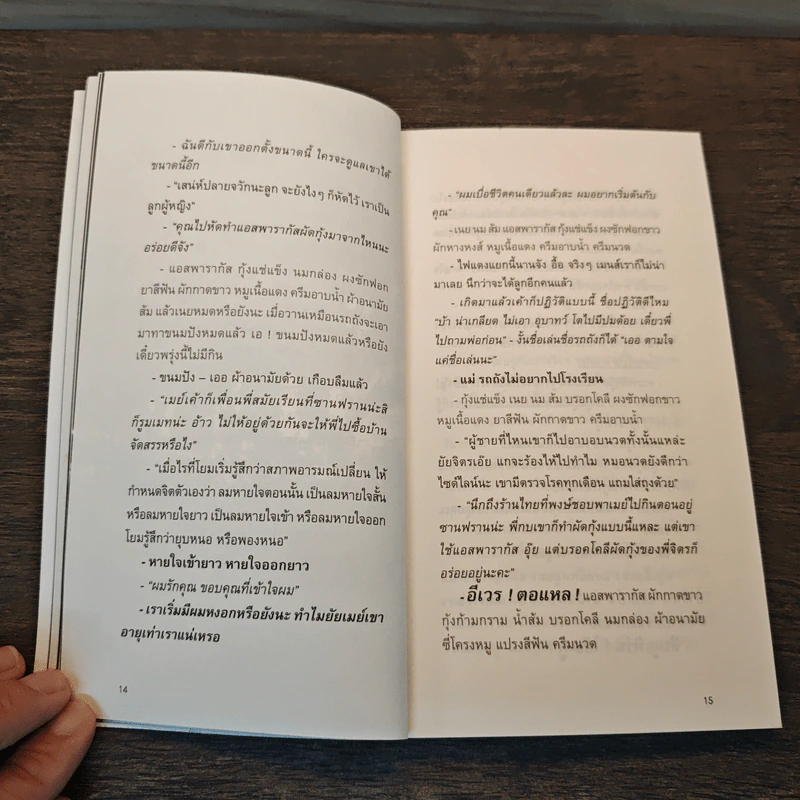 - ฉันดีกับเขาออกตั้งขนาดนี้ ใครจะดูแลเขาได้
ขนาดนี้อีก
- "เสน่ห์ปลายจวักนะลูก จะยังไงๆ ก็หัดไว้ เราเป็น
ลูกผู้หญิง"
- "คุณไปหัดทำแอสพารากัสผัดกุ้งมาจากไหนนะ
อร่อยดีจัง"
- แอสพารากัส กุ้งแช่แข็ง นมกล่อง ผงซักฟอก
ยาสีฟัน ผักกาดขาว หมูเนื้อแดง ครีมอาบน้ำ ผ้าอนามัย
ส้ม แล้วเนยหมดหรือยังนะ เมื่อวานเหมือนรถถังจะเอา
มาทาขนมปังหมดแล้ว เอ ! ขนมปังหมดแล้วหรือยัง
เดี๋ยวพรุ่งนี้ไม่มีกิน
- ขนมปัง – เออ ผ้าอนามัยด้วย เกือบลืมแล้ว
- "เมย์เค้าก็เพื่อนพี่สมัยเรียนที่ซานฟรานน่ะสิ
ก็รูมเมทน่ะ อ้าว ไม่ให้อยู่ด้วยกันจะให้พี่ไปซื้อบ้าน
จัดสรรหรือไง"
- "เมื่อไรที่โยมเริ่มรู้สึกว่าสภาพอารมณ์เปลี่ยน ให้
กำหนดจิตตัวเองว่า ลมหายใจตอนนั้น เป็นลมหายใจสั้น
หรือลมหายใจยาว เป็นลมหายใจเข้า หรือลมหายใจออก
โยมรู้สึกว่ายุบหนอ หรือพองหนอ"
- หายใจเข้ายาว หายใจออกยาว
- "ผมรักคุณ ขอบคุณที่เข้าใจผม"
- เราเริ่มมีผมหงอกหรือยังนะ ทำไมยัยเมย์เขา
อายุเท่าเราแน่เหรอ
14
- "ผมเบื่อชีวิตคนเดียวแล้วละ ผมอยากเริ่มต้นกับ
คุณ"
- เนย นม ส้ม แอสพารากัส กุ้งแช่แข็ง ผงซักฟอกขาว
ผักหางหงส์ หมูเนื้อแดง ครีมอาบน้ำ ครีมนวด
- ไฟแดงแยกนี้นานจัง อื้อ จริงๆ เมนส์เราก็ไม่น่า
มาเลย นึกว่าจะได้ลูกอีกคนแล้ว
- เกิดมาแล้วเค้าก็ปฏิวัติแบบนี้ ชื่อปฏิวัติดีไหม
"บ้า น่าเกลียด ไม่เอา อุบาทว์ โตไปมีปมด้อย เดี๋ยวพี่
ไปถามพ่อก่อน" - งั้นชื่อเล่นชื่อรถถังก็ได้ "เออ ตามใจ
แค่ชื่อเล่นนะ"
- แม่ รถถังไม่อยากไปโรงเรียน
- กุ้งแช่แข็ง เนย นม ส้ม บรอกโคลี ผงซักฟอกขาว
หมูเนื้อแดง ยาสีฟัน ผักกาดขาว ครีมอาบน้ำ
- "ผู้ชายที่ไหนเขาก็ไปอาบอบนวดทั้งนั้นแหล่ะ
ยัยจิตรเอ๊ย แกจะร้องไห้ไปทำไม หมอนวดยังดีกว่า
ไซด์ไลน์นะ เขามีตรวจโรคทุกเดือน แถมใส่ถุงด้วย"
- "นึกถึงร้านไทยที่พงษ์ชอบพาเมย์ไปกินตอนอยู่
ซานฟรานน่ะ พี่กบเขาก็ทำผัดกุ้งแบบนี้แหละ แต่เขา
ใช้แอสพารากัส อุ๊ย แต่บรอคโคลีผัดกุ้งของพี่จิตรก็
อร่อยอยู่นะคะ"
- อีเวร ! ตอแหล ! แอสพารากัส ผักกาดขาว
กุ้งก้ามกราม น้ำส้ม บรอกโคลี นมกล่อง ผ้าอนามัย
ซี่โครงหมู แปรงสีฟัน ครีมนวด
15